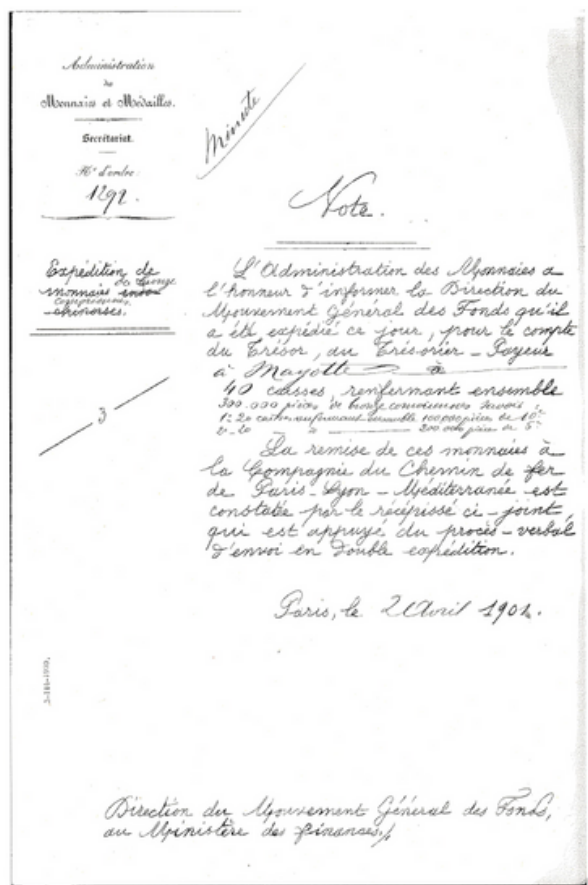 Administration
des
Monnaies et Médailles.
Secrétariat.
N° d'ordre:
1292.
Minute
Note.
Expédition de
monnaies de bronze
comoriennes
L'Administration des Monnaies a
l'honneur d'informer la Direction du
Mouvement Général des Fonds qu'il
a été expédié ce jour, pour le compte
du Trésor, au Trésorier-Payeur
à Mayotte
40 caisses, renfermant ensemble
300.000 pièces de bronze comoriennes savoir
1°- 20 caisses renfermant ensemble 100000 pièces de 10c
2°- 20 200 000 pièces de 5c
La remise de ces monnaies à
la Compagnie du Chemin de fer
de Paris-Lyon-Méditerranée est
constatée par le récépissé ci-joint,
qui est appuyé du procès-verbal
d'envoi en double expédition.
3
Paris, le 2 Avril 1902.
Direction du Mouvement Général des Fonds,
au Ministère des finances./.